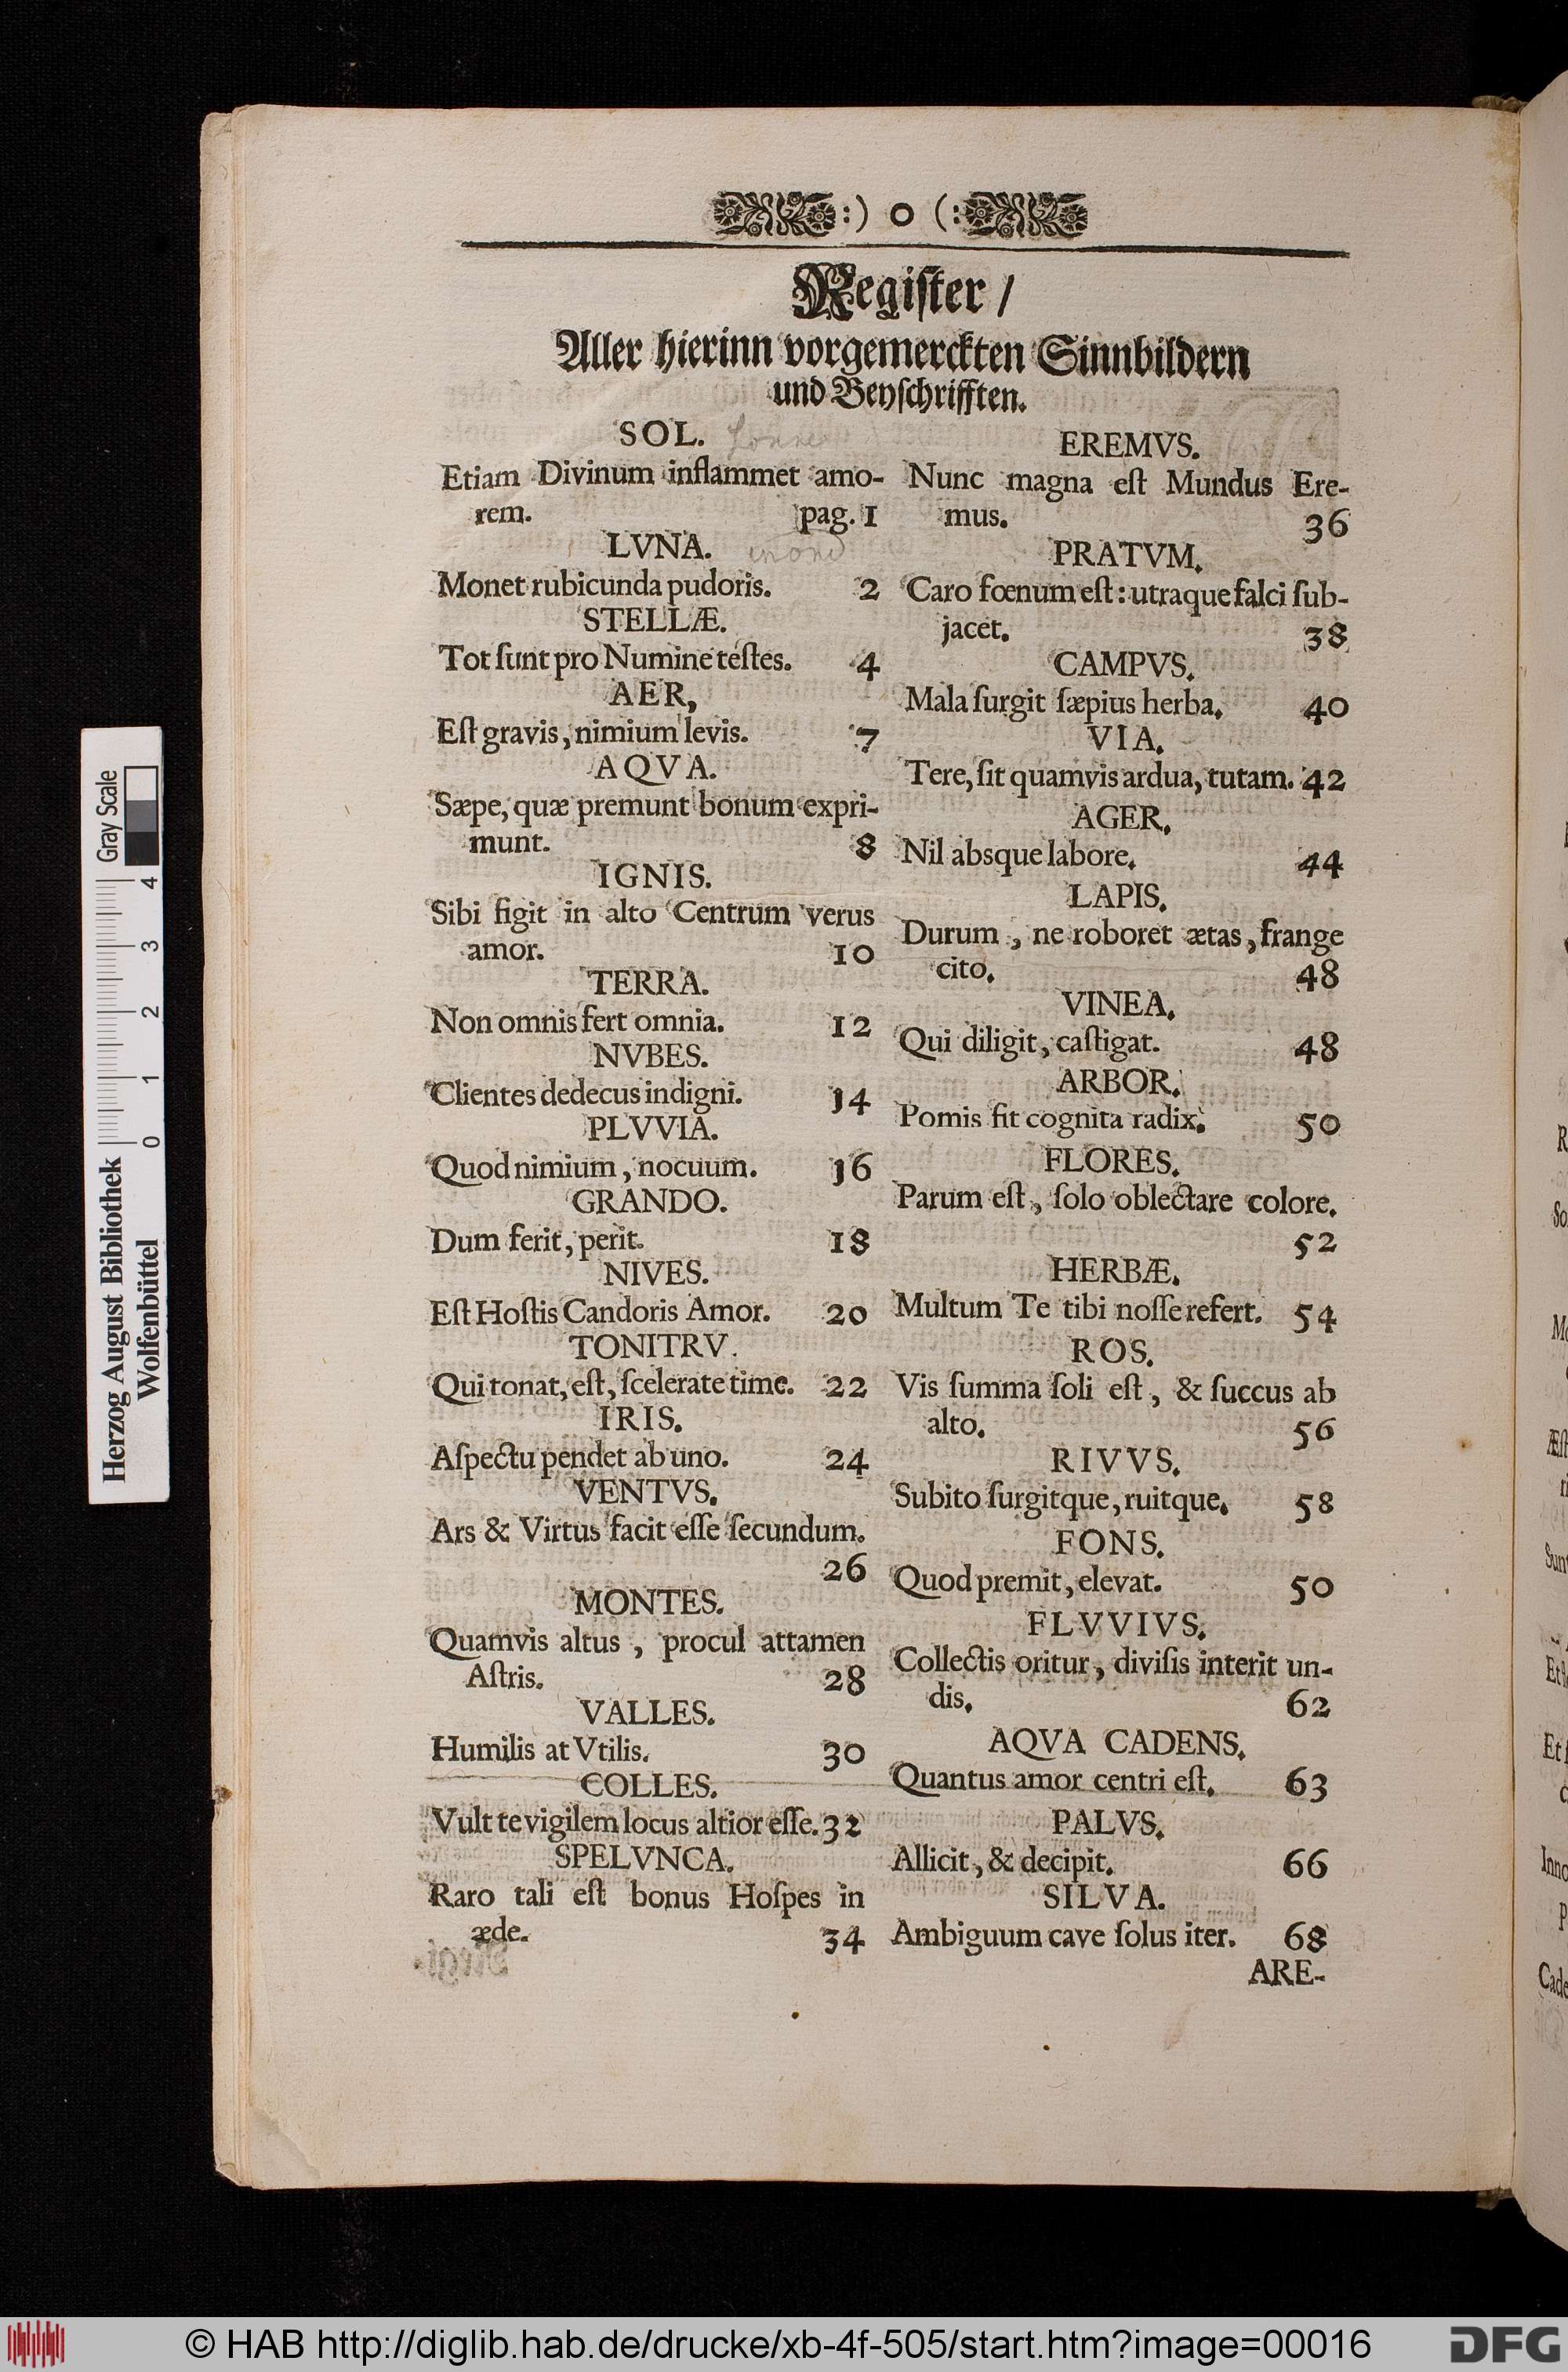 :) o (:
Regiſter /
Aller hierinn vorgemerckten Sinnbildern
und Beyſchrifften.
SOL.
Etiam Divinum inflammet amo-
rem. pag. 1
LVNA. mond
Monet rubicunda pudoris. 2
STELLÆ.
Tot ſunt pro Numine teſtes. 4
AER,
Eſt gravis, nimium levis. 7
AQVA.
Sæpe, quæ premunt bonum expri-
munt. 8
IGNIS.
Sibi figit in alto Centrum verus
amor. 10
TERRA.
Non omnis fert omnia. 12
NVBES.
Clientes dedecus indigni. 14
PLVVIA.
Quod nimium, nocuum. 16
GRANDO.
Dum ferit, perit. 18
NIVES.
Eſt Hoſtis Candoris Amor. 20
TONITRV.
Qui tonat, eſt, ſcelerate time. 22
IRIS.
Aſpectu pendet ab uno. 24
VENTVS.
Ars & Virtus facit eſſe ſecundum.
26
MONTES.
Quamvis altus, procul attamen
Aſtris. 28
VALLES.
Humilis at Vtilis. 30
COLLES.
Vult te vigilem locus altior eſſe. 32
SPELVNCA.
Raro tali eſt bonus Hoſpes in
æde. 34
EREMVS.
Nunc magna eſt Mundus Ere-
mus. 36
PRATVM.
Caro fœnum eſt: utraque falci ſub-
jacet. 38
CAMPVS.
Mala ſurgit ſæpius herba. 40
VIA.
Tere, ſit quamvis ardua, tutam. 42
AGER.
Nil absque labore. 44
LAPIS.
Durum, ne roboret ætas, frange
cito. 48
VINEA.
Qui diligit, caſtigat. 48
ARBOR.
Pomis fit cognita radix. 50
FLORES.
Parum eſt, ſolo oblectare colore.
52
HERBÆ.
Multum Te tibi noſſe refert. 54
ROS.
Vis ſumma ſoli eſt, & ſuccus ab
alto. 56
RIVVS.
Subito ſurgitque, ruitque. 58
FONS.
Quod premit, elevat. 50
FLVVIVS.
Collectis oritur, diviſis interit un-
dis. 62
AQVA CADENS.
Quantus amor centri eſt. 63
PALVS.
Allicit, & decipit. 66
SILVA.
Ambiguum cave ſolus iter. 68
ARE-
Herzog August Bibliothek
Wolfenbüttel
Gray Scale
0 1 2 3 4
© HAB http://diglib.hab.de/drucke/xb-4f-505/start.htm?image=00016
DFG